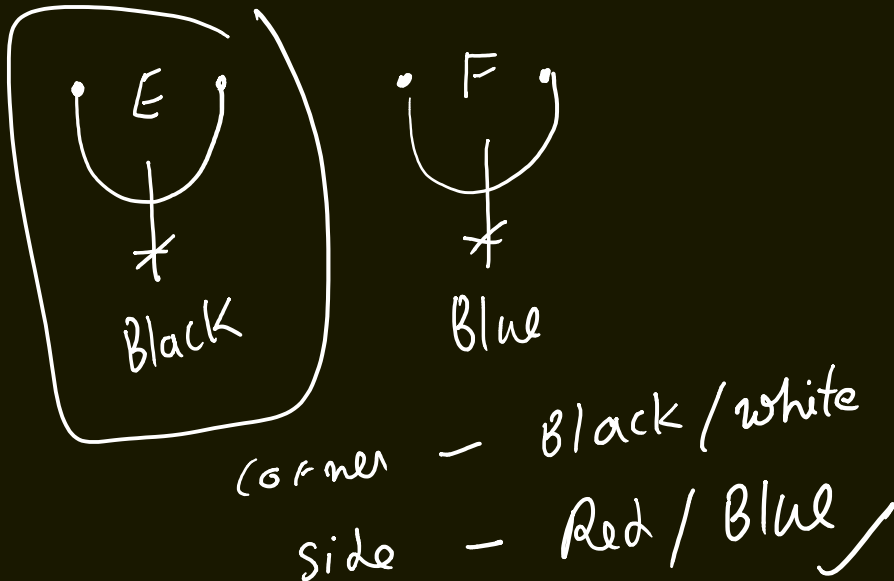 E F
Black Blue
corner - Black / white
side - Red / Blue ✓